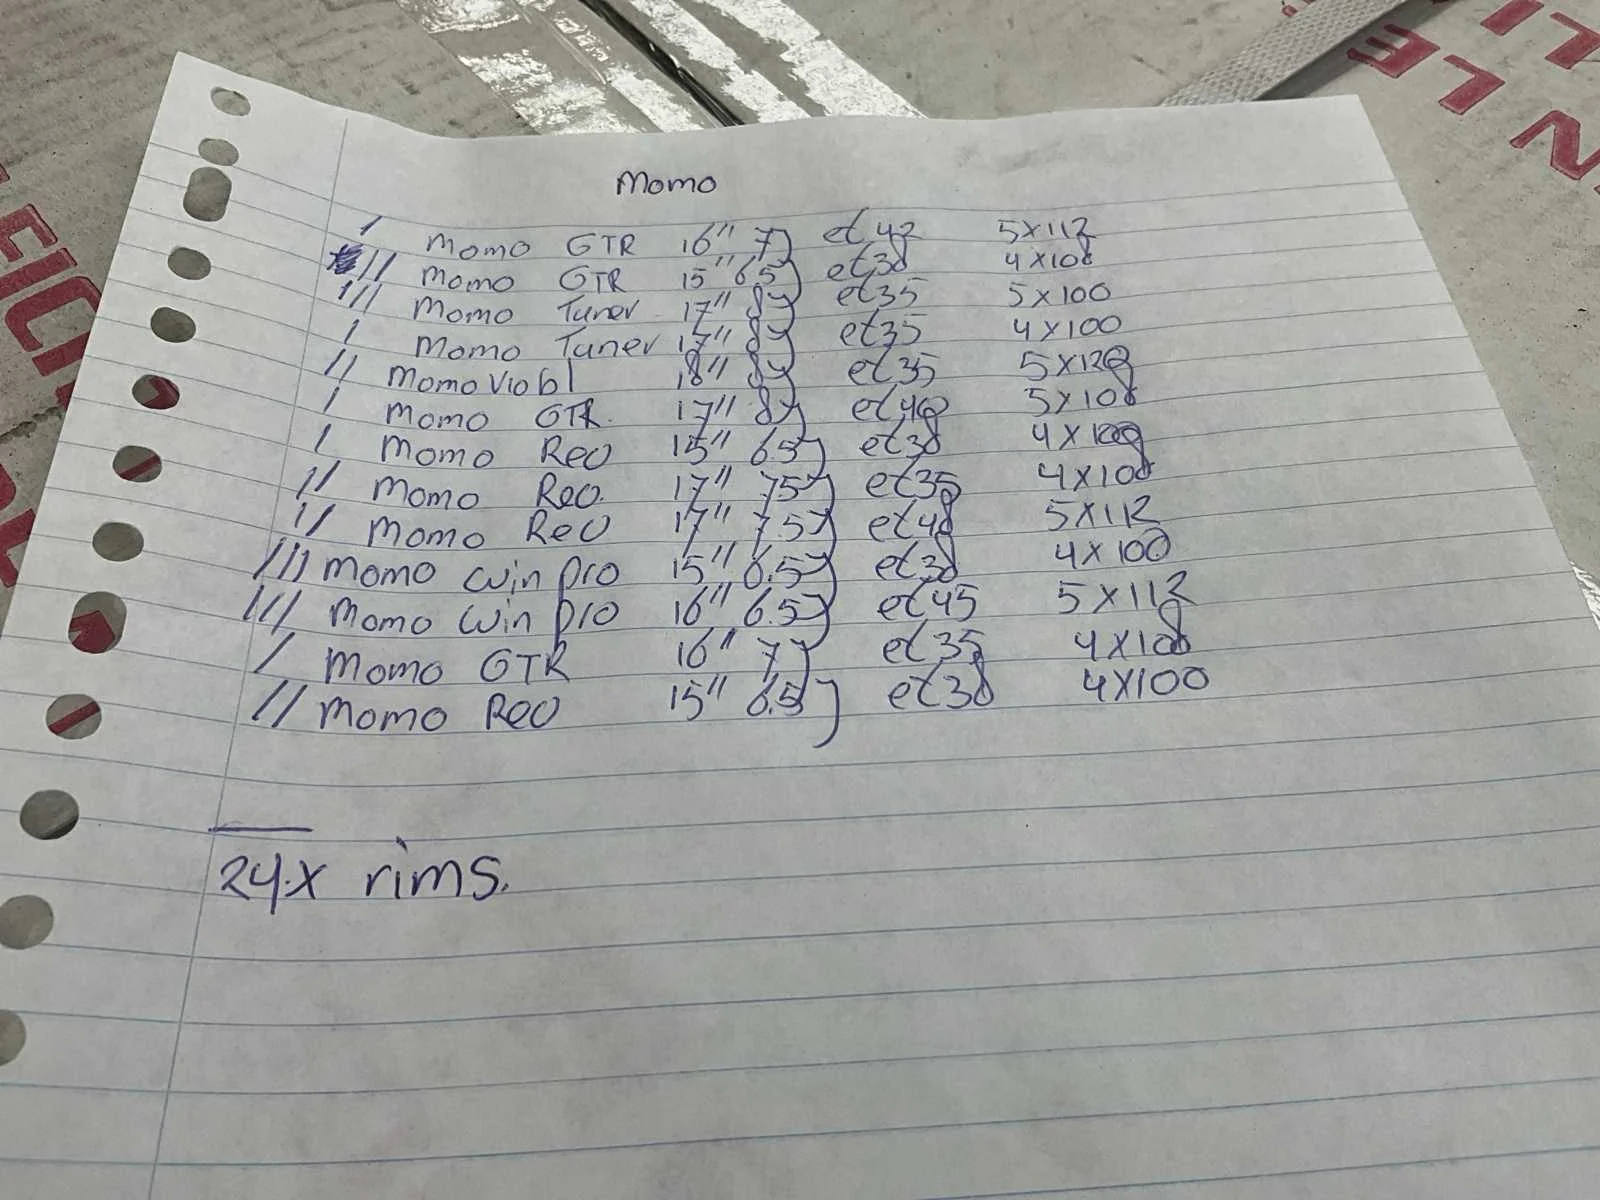 Momo
/ Momo GTR 16" 7J et 42 5x112
// Momo GTR 15" 6.5J et38 4x108
/// Momo Tuner 17" 8J et35 5x100
/ Momo Tuner 17" 8J et35 4x100
// Momo 18" 8J et35 5x120
/ Momo GTR 17" 8J et40 5x108
/ Momo Rev 15" 6.5J et38 4x100
// Momo Rev 17" 75J et35 4x108
// Momo Rev 17" 7.5J et48 5x112
/// Momo win pro 15" 6.5J et38 4x100
/// Momo win pro 16" 6.5J et45 5x112
/ Momo GTR 16" 7J et35 4x108
// Momo Rev 15" 6.5J et38 4x100
24x rims.